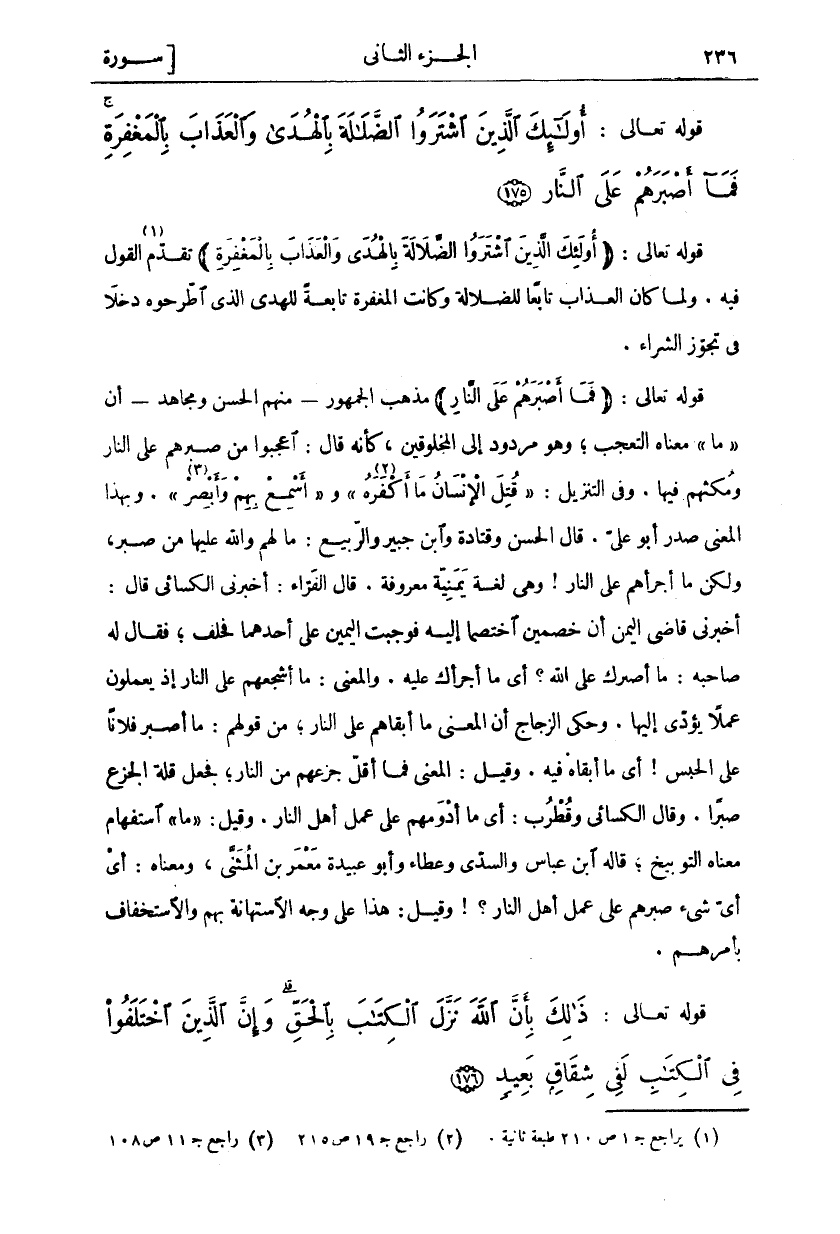 ٢٣٦ الجـزء الثـانى [ ســورة
قوله تعـالى : أُولَـٰٓئِكَ ٱلَّذِينَ ٱشْتَرَوُا ٱلضَّلَـٰلَةَ بِٱلْهُـدَىٰ وَٱلْعَذَابَ بِٱلْمَغْفِرَةِ ج
فَمَـآ أَصْبَرَهُمْ عَلَى ٱلنَّار ﴿١٧٥﴾
قوله تعالى : ﴿ أُولَئِكَ الَّذِينَ ٱشْتَرَوُا الضَّلَالَةَ بِالْهُدَى وَالْعَذَابَ بِالْمَغْفِرَةِ ﴾ تقـدّم القول (١)
فيه . ولمـا كان العـذاب تابعًا للضـلالة وكانت المغفرة تابعـةً للهدى الذى ٱطّرحوه دخلَا
فى تجوّز الشراء .
قوله تعالى : ﴿ فَمَـا أَصْبَرَهُمْ عَلَى النَّارِ ﴾ مذهب الجمهور — منهم الحسن ومجاهد — أن
« ما » معناه التعجب ؛ وهو مردود إلى المخلوقين ، كأنه قال : ٱعجبوا من صـبرهم على النار
ومُكثهم فيها . وفى التنزيل : « قُتِلَ الْإِنْسَانُ مَا أَكْفَرَهُ (٢) » و « أَسْمِـعْ بِهِمْ وَأَبْصِرْ (٣) » . وبهذا
المعنى صدر أبو علىّ . قال الحسن وقتادة وٱبن جبير والرّبيـع : ما لهم والله عليها من صـبر،
ولكن ما أجرأهم على النار ! وهى لغـة يَمَنِيّة معروفة . قال الفَرّاء : أخبرنى الكسائى قال :
أخبرنى قاضى اليمن أن خصمين ٱختصما إليـه فوجبت اليمين على أحدهما فحلف ؛ فقـال له
صاحبه : ما أصبرك على الله ؟ أى ما أجرأك عليه . والمعنى : ما أشجعهم على النار إذ يعملون
عملًا يؤدّى إليها . وحكى الزجاج أن المعـنى ما أبقاهم على النار ؛ من قولهم : ما أصـبر فلانًا
على الحبس ! أى ما أبقاه فيه . وقيـل : المعنى فمـا أقلّ جزعهم من النار؛ فجعل قلة الجزع
صبرًا . وقال الكسائى وقُطْرُب : أى ما أدْوَمهم على عمل أهل النار . وقيل: «ما» ٱستفهام
معناه التوبيخ ؛ قاله ٱبن عباس والسدّى وعطاء وأبو عبيدة مَعْمَر بن المُثَنَّى ، ومعناه : أىْ
أىّ شىء صبرهم على عمل أهل النار ؟ ! وقيـل: هذا على وجه الٱستهانة بهم والٱستخفاف
بأمرهـم .
قوله تعـالى : ذَٰلِكَ بِأَنَّ ٱللَّهَ نَزَّلَ ٱلْـكِتَـٰبَ بِٱلْحَقِّ ۗ وَإِنَّ ٱلَّذِينَ ٱخْتَلَفُوا۟
فِى ٱلْـكِتَـٰبِ لَفِى شِقَاقٍ بَعِيدٍ ﴿١٧٦﴾
(١) يراجع جـ ١ ص ٢١٠ طبعة ثانية . (٢) راجع جـ ١٩ ص ٢١٥ (٣) راجع جـ ١١ ص ١٠٨